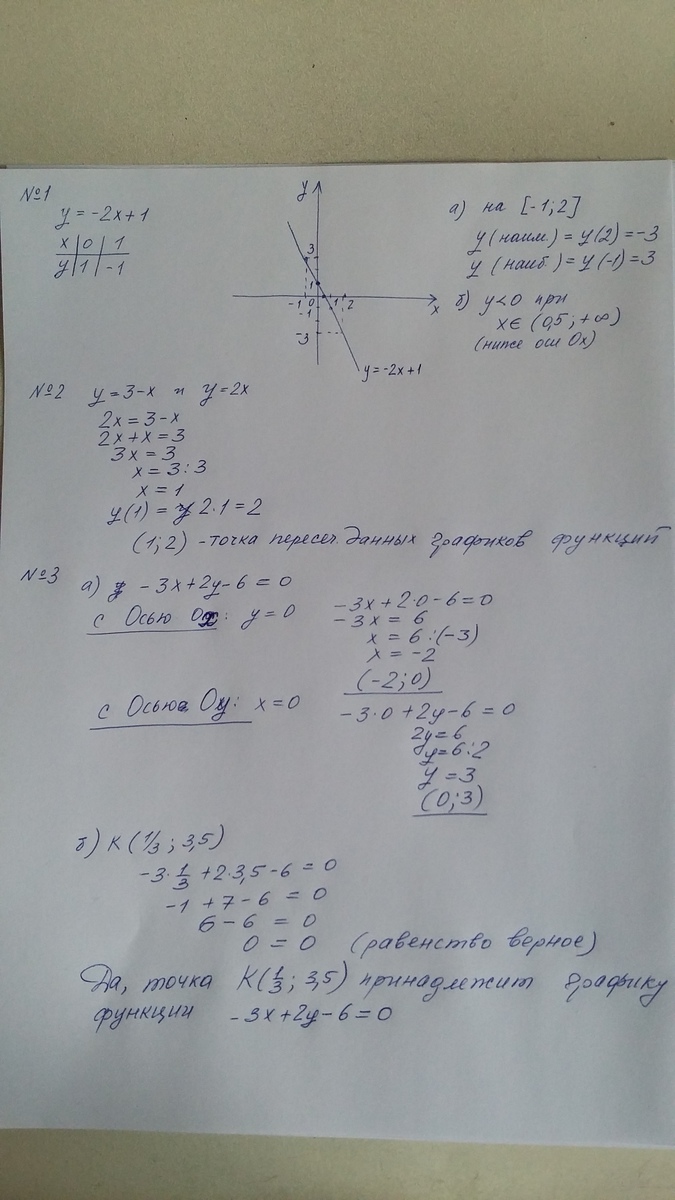 №1
y = -2x+1
x | 0 | 1
y | 1 | -1
y
3
1
-1 0 1 2 x
-1
-3
y = -2x+1
а) на [-1; 2]
y (наим.) = y(2) = -3
y (наиб.) = y(-1) = 3
б) y<0 при
x∈ (0,5; +∞)
(ниже оси Ox)
№2 y = 3-x и y = 2x
2x = 3-x
2x+x = 3
3x = 3
x = 3:3
x = 1
y(1) = 2·1 = 2
(1; 2) - точка пересеч. данных графиков функций
№3 а) -3x+2y-6 = 0
с Осью Ox: y = 0
-3x+2·0-6 = 0
-3x = 6
x = 6:(-3)
x = -2
(-2; 0)
с Осью Oy: x = 0
-3·0+2y-6 = 0
2y = 6
y = 6:2
y = 3
(0; 3)
б) K (1/3; 3,5)
-3·1/3+2·3,5-6 = 0
-1+7-6 = 0
6-6 = 0
0 = 0 (равенство верное)
Да, точка K(1/3; 3,5) принадлежит графику
функции -3x+2y-6 = 0